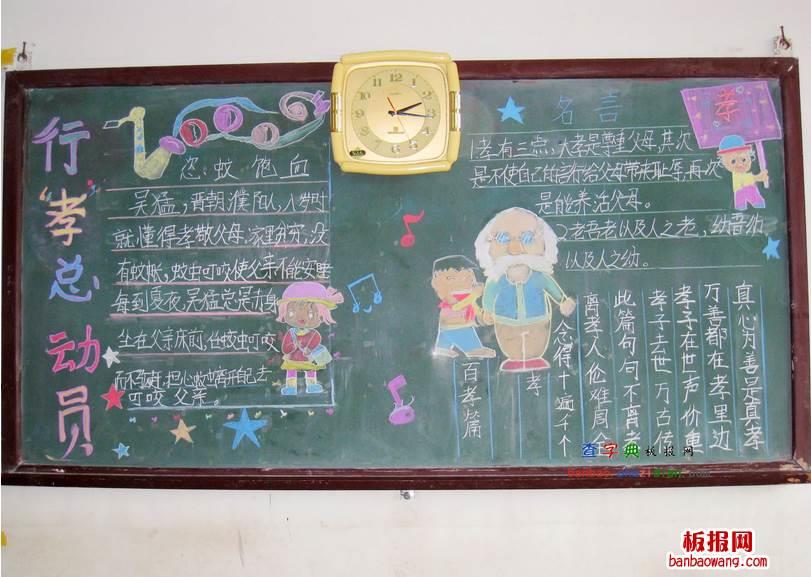 行"孝"总动员
恣蚊饱血
吴猛，晋朝濮阳人，八岁时
就懂得孝敬父母，家里贫穷，没
有蚊帐，蚊虫叮咬使父亲不能安睡
每到夏夜，吴猛总是赤身
坐在父亲床前，任蚊虫叮咬
而不驱赶，担心蚊虫离开自己去
叮咬父亲。
名言
孝
1孝有三点，大孝是尊重父母，其次
是不使自己的言行给父母带来耻辱，再次
是能养活父母。
2老吾老以及人之老，幼吾幼
以及人之幼。
真心为善是真孝
万善都在孝里边
孝子在世声价重
孝子去世万古传
此篇句句不离孝
离孝人伦难周全
念得十遍千个
孝
百孝篇
查字典板报网
板报网
banbaowang.com